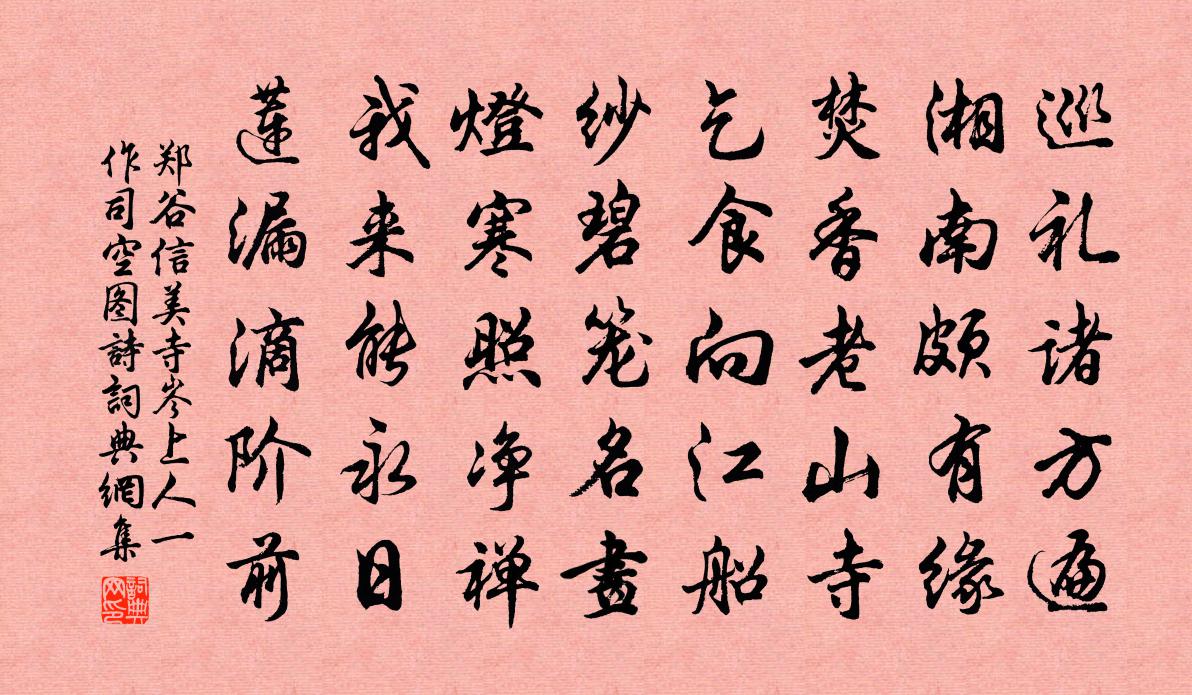 巡礼诸方遍
湘南颇有缘
焚香老山寺
乞食向江船
纱碧笼名畫
燈寒照净禅
我来能永日
莲漏滴阶前
郑谷信美寺岑上人一
作司空图詩詞典網集
詞典
网印